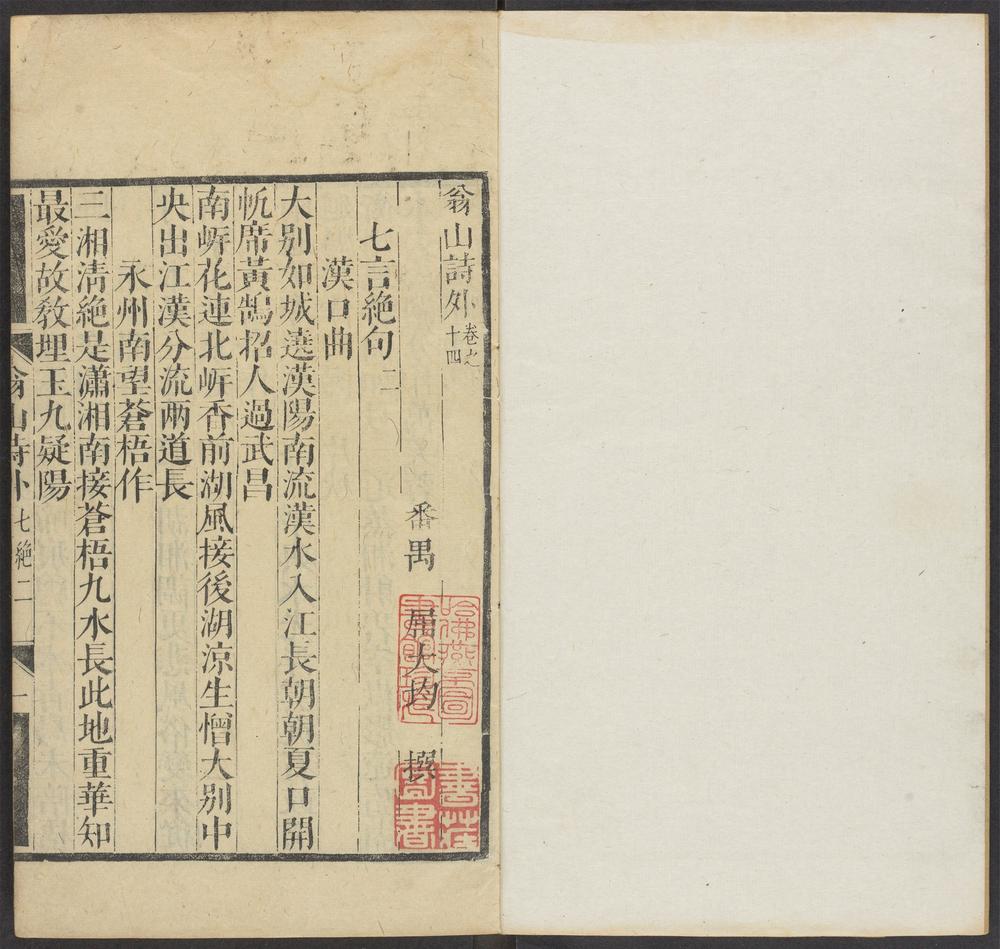 翁山詩外卷之十四
番禺 屈大均 撰
七言絶句二
漢口曲
大别如城遶漢陽南流漢水入江長朝朝夏口開
帆席黃鵠招人過武昌
南㟁花連北㟁香前湖風接後湖涼生憎大别中
央出江漢分流兩道長
永州南望蒼梧作
三湘淸絶是瀟湘南接蒼梧九水長此地重華知
最愛故敎埋玉九疑陽
翁山詩外 七絶二 一
哈佛燕京圖書館珍藏